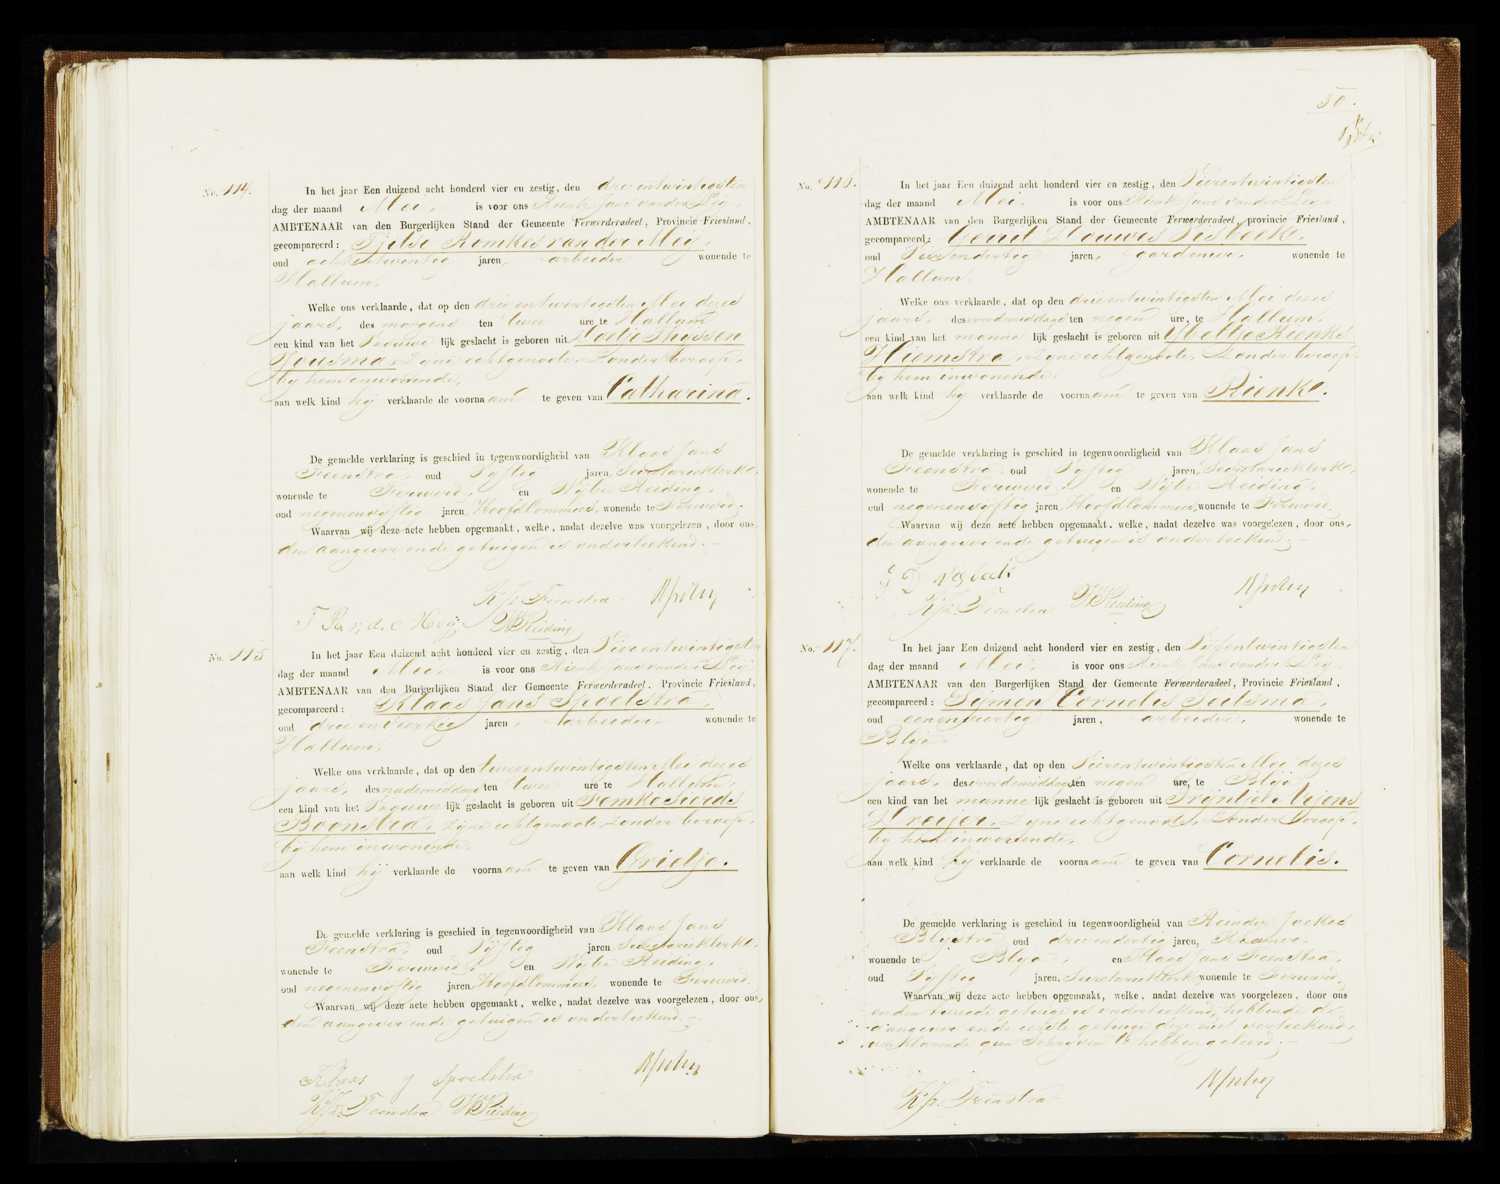 No. 114.
In het jaar Een duizend acht honderd vier en zestig, den drie entwintigsten
dag der maand Mei, is voor ons Rienk Jans van der Ley,
AMBTENAAR van den Burgerlijken Stand der Gemeente Ferwerderadeel, Provincie Friesland,
gecompareerd: Tjitse Romkes van der Meij,
oud acht entwintig jaren, arbeider wonende te
Hallum,
Welke ons verklaarde, dat op den drie entwintigsten Mei dezes
jaars, des morgens ten twee ure te Hallum
een kind van het vrouwe lijk geslacht is geboren uit
Bousma, zijne echtgenoote, zonder beroep,
bij hem inwonende,
aan welk kind hij verklaarde de voornaam te geven van Catharina.
De gemelde verklaring is geschied in tegenwoordigheid van Klaas Jans
Feenstra, oud vijftig jaren, Secretarieklerk,
wonende te Ferwerd, en Wijbe Reiding,
oud negenenvijftig jaren, Hoofdcommies, wonende te Ferwerd.
Waarvan wij deze acte hebben opgemaakt, welke, nadat dezelve was voorgelezen, door ons,
den aangever ende getuigen is onderteekend.
T R v. d. Meij
K. Js. Feenstra
W Reiding
No. 115
In het jaar Een duizend acht honderd vier en zestig, den vier entwintigsten
dag der maand Mei, is voor ons Rienk Jans van der Ley
AMBTENAAR van den Burgerlijken Stand der Gemeente Ferwerderadeel, Provincie Friesland,
gecompareerd: Klaas Jans Spoelstra,
oud drie en veertig jaren, arbeider, wonende te
Hallum,
Welke ons verklaarde, dat op den twee entwintigsten Mei dezes
jaars, des nademiddags ten twee ure te Hallum
een kind van het vrouwe lijk geslacht is geboren uit Femke Sjoerds
Boonstra, zijne echtgenoote, zonder beroep,
bij hem inwonende,
aan welk kind hij verklaarde de voornaam te geven van Grietje.
De gemelde verklaring is geschied in tegenwoordigheid van Klaas Jans
Feenstra, oud vijftig jaren Secretarieklerk,
wonende te Ferwerd, en Wijbe Reiding,
oud negenenvijftig jaren, Hoofdcommies, wonende te Ferwerd.
Waarvan wij deze acte hebben opgemaakt, welke, nadat dezelve was voorgelezen, door ons,
den aangever ende getuigen is onderteekend.
Klaas J Spoelstra
K. Js. Feenstra W Reiding
50.
No. 116.
In het jaar Een duizend acht honderd vier en zestig, den vier entwintigsten
dag der maand Mei, is voor ons Rienk Jans van der Ley,
AMBTENAAR van den Burgerlijken Stand der Gemeente Ferwerderadeel, provincie Friesland,
gecompareerd: Gerrit Douwes
oud jaren, gardenier, wonende te
Hallum,
Welke ons verklaarde, dat op den drie entwintigsten Mei dezes
jaars, des voordemiddags ten negen ure, te Hallum,
een kind van het manne lijk geslacht is geboren uit IJbeltje Rienks
Hiemstra, zijne echtgenoote, zonder beroep,
bij hem inwonende,
aan welk kind hij verklaarde de voornaam te geven van Rienk.
De gemelde verklaring is geschied in tegenwoordigheid van Klaas Jans
Feenstra oud vijftig jaren, Secretarieklerk,
wonende te Ferwerd, en Wijbe Reiding,
oud negenenvijftig jaren Hoofdcommies, wonende te Ferwerd.
Waarvan wij deze acte hebben opgemaakt, welke, nadat dezelve was voorgelezen, door ons,
den aangever ende getuigen is onderteekend;
K. Js. Feenstra W Reiding
No. 117.
In het jaar Een duizend acht honderd vier en zestig, den vijfentwintigsten
dag der maand Mei, is voor ons Rienk Jans van der Ley,
AMBTENAAR van den Burgerlijken Stand der Gemeente Ferwerderadeel, Provincie Friesland,
gecompareerd: Sijmen Cornelis
oud eenenveertig jaren, arbeider, wonende te
Blija
Welke ons verklaarde, dat op den vierentwintigsten Mei dezes
jaars, des voordemiddags ten negen ure, te Blija
een kind van het manne lijk geslacht is geboren uit Trijntje Arjens
Dreijer, zijne echtgenoote, zonder beroep,
bij hem inwonende,
aan welk kind hij verklaarde de voornaam te geven van Cornelis.
De gemelde verklaring is geschied in tegenwoordigheid van Reinder
oud drieendertig jaren,
wonende te Blija, en Klaas Jans Feenstra,
oud vijftig jaren, Secretarieklerk wonende te Ferwerd.
Waarvan wij deze acte hebben opgemaakt, welke, nadat dezelve was voorgelezen, door ons
en den tweede getuige is onderteekend, hebbende de
aangever en de eerste getuige deze niet geteekend,
verklarende geen schrijven te hebben geleerd.
K. Js. Feenstra